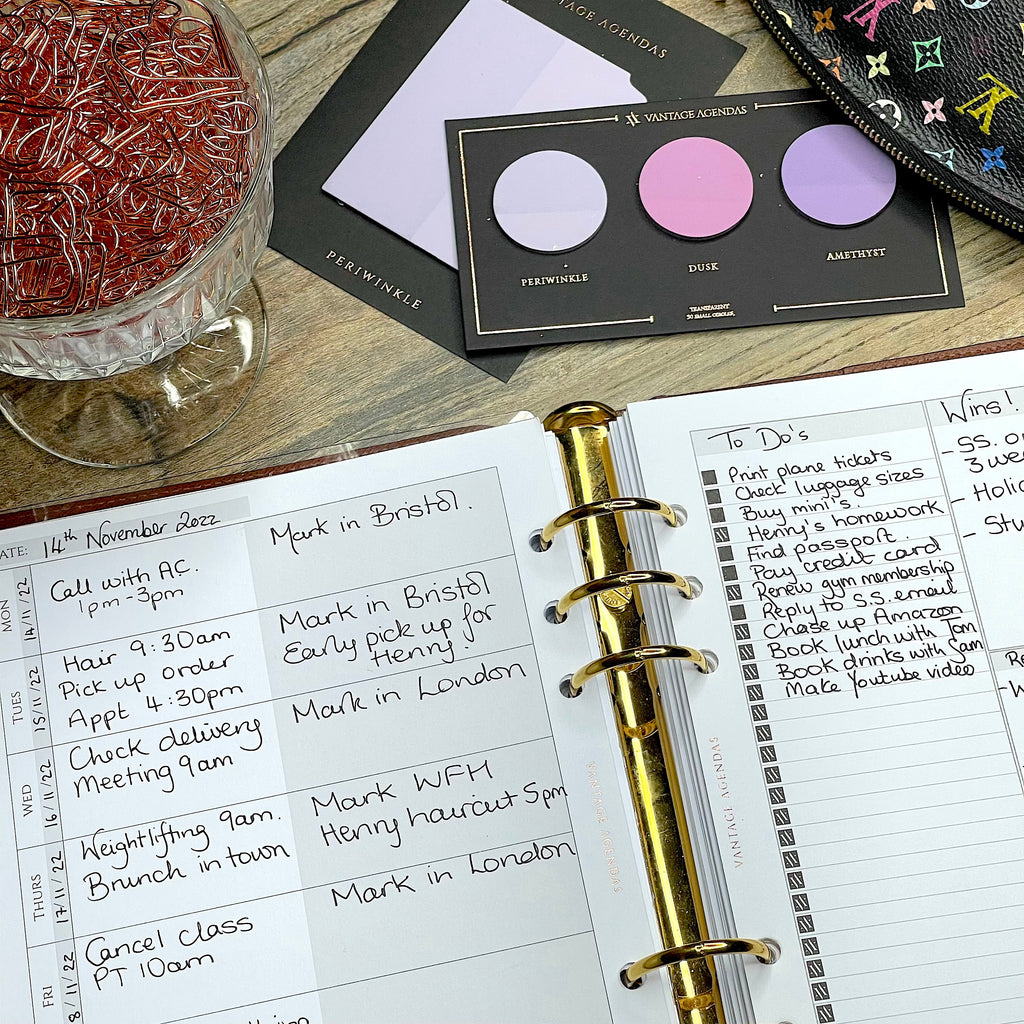 VANTAGE AGENDAS
VANTAGE AGENDAS
PERIWINKLE
DUSK
AMETHYST
TRANSPARENT
50 SMALL CIRCLES
PERIWINKLE
DATE: 14th November 2022
MON 14/11/22
Call with A.C.
1pm-3pm
Mark in Bristol.
TUES 15/11/22
Hair 9:30am
Pick up order
Appt 4:30pm
Mark in Bristol
Early pick up for
Henry!
WED 16/11/22
Check delivery
Meeting 9am
Mark in London
THURS 17/11/22
Weightlifting 9am.
Brunch in town
Mark WFH
Henry haircut 5pm
FRI 8/11/22
Cancel class
PT 10am
Mark in London
VANTAGE AGENDAS
VANTAGE AGENDAS
To Do's
Print plane tickets
Check luggage sizes
Buy mini's.
Henry's homework
Find passport.
Pay credit card
Renew gym membership
Reply to S.S. email
Chase up Amazon
Book lunch with Tom
Book drinks with Sam
Make Youtube video
Wins!
- S.S. 
3
-
-